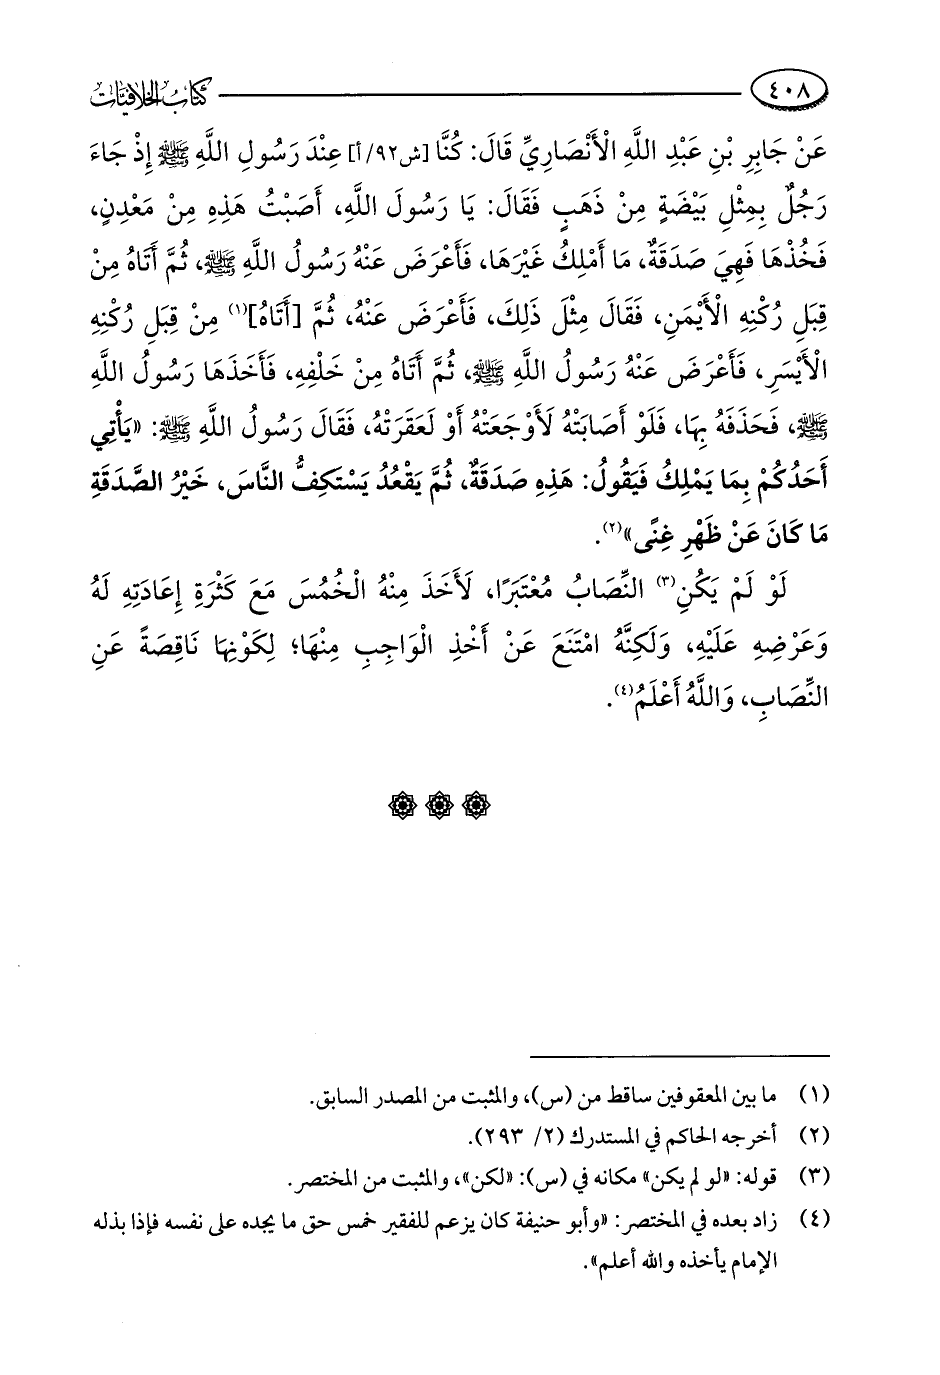 ٤٠٨ كتاب الخلافيات
عَنْ جَابِرِ بْنِ عَبْدِ اللَّهِ الْأَنْصَارِيِّ قَالَ: كُنَّا [ش٩٢/أ] عِنْدَ رَسُولِ اللَّهِ ﷺ إِذْ جَاءَ
رَجُلٌ بِمِثْلِ بَيْضَةٍ مِنْ ذَهَبٍ فَقَالَ: يَا رَسُولَ اللَّهِ، أَصَبْتُ هَذِهِ مِنْ مَعْدِنٍ،
فَخُذْهَا فَهِيَ صَدَقَةٌ، مَا أَمْلِكُ غَيْرَهَا، فَأَعْرَضَ عَنْهُ رَسُولُ اللَّهِ ﷺ، ثُمَّ أَتَاهُ مِنْ
قِبَلِ رُكْنِهِ الْأَيْمَنِ، فَقَالَ مِثْلَ ذَلِكَ، فَأَعْرَضَ عَنْهُ، ثُمَّ [أَتَاهُ](١) مِنْ قِبَلِ رُكْنِهِ
الْأَيْسَرِ، فَأَعْرَضَ عَنْهُ رَسُولُ اللَّهِ ﷺ، ثُمَّ أَتَاهُ مِنْ خَلْفِهِ، فَأَخَذَهَا رَسُولُ اللَّهِ
ﷺ، فَحَذَفَهُ بِهَا، فَلَوْ أَصَابَتْهُ لَأَوْجَعَتْهُ أَوْ لَعَقَرَتْهُ، فَقَالَ رَسُولُ اللَّهِ ﷺ: «يَأْتِي
أَحَدُكُمْ بِمَا يَمْلِكُ فَيَقُولُ: هَذِهِ صَدَقَةٌ، ثُمَّ يَقْعُدُ يَسْتَكِفُّ النَّاسَ، خَيْرُ الصَّدَقَةِ
مَا كَانَ عَنْ ظَهْرِ غِنًى»(٢).
لَوْ لَمْ يَكُنِ(٣) النِّصَابُ مُعْتَبَرًا، لَأَخَذَ مِنْهُ الْخُمُسَ مَعَ كَثْرَةِ إِعَادَتِهِ لَهُ
وَعَرْضِهِ عَلَيْهِ، وَلَكِنَّهُ امْتَنَعَ عَنْ أَخْذِ الْوَاجِبِ مِنْهَا؛ لِكَوْنِهَا نَاقِصَةً عَنِ
النِّصَابِ، وَاللَّهُ أَعْلَمُ(٤).
(١) ما بين المعقوفين ساقط من (س)، والمثبت من المصدر السابق.
(٢) أخرجه الحاكم في المستدرك (٢/ ٢٩٣).
(٣) قوله: «لو لم يكن» مكانه في (س): «لكن»، والمثبت من المختصر.
(٤) زاد بعده في المختصر: «وأبو حنيفة كان يزعم للفقير خمس حق ما يجده على نفسه فإذا بذله
الإمام يأخذه والله أعلم».